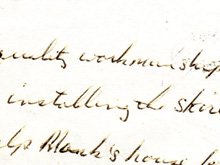 quality workmanship
installing the skir
help Hank's house